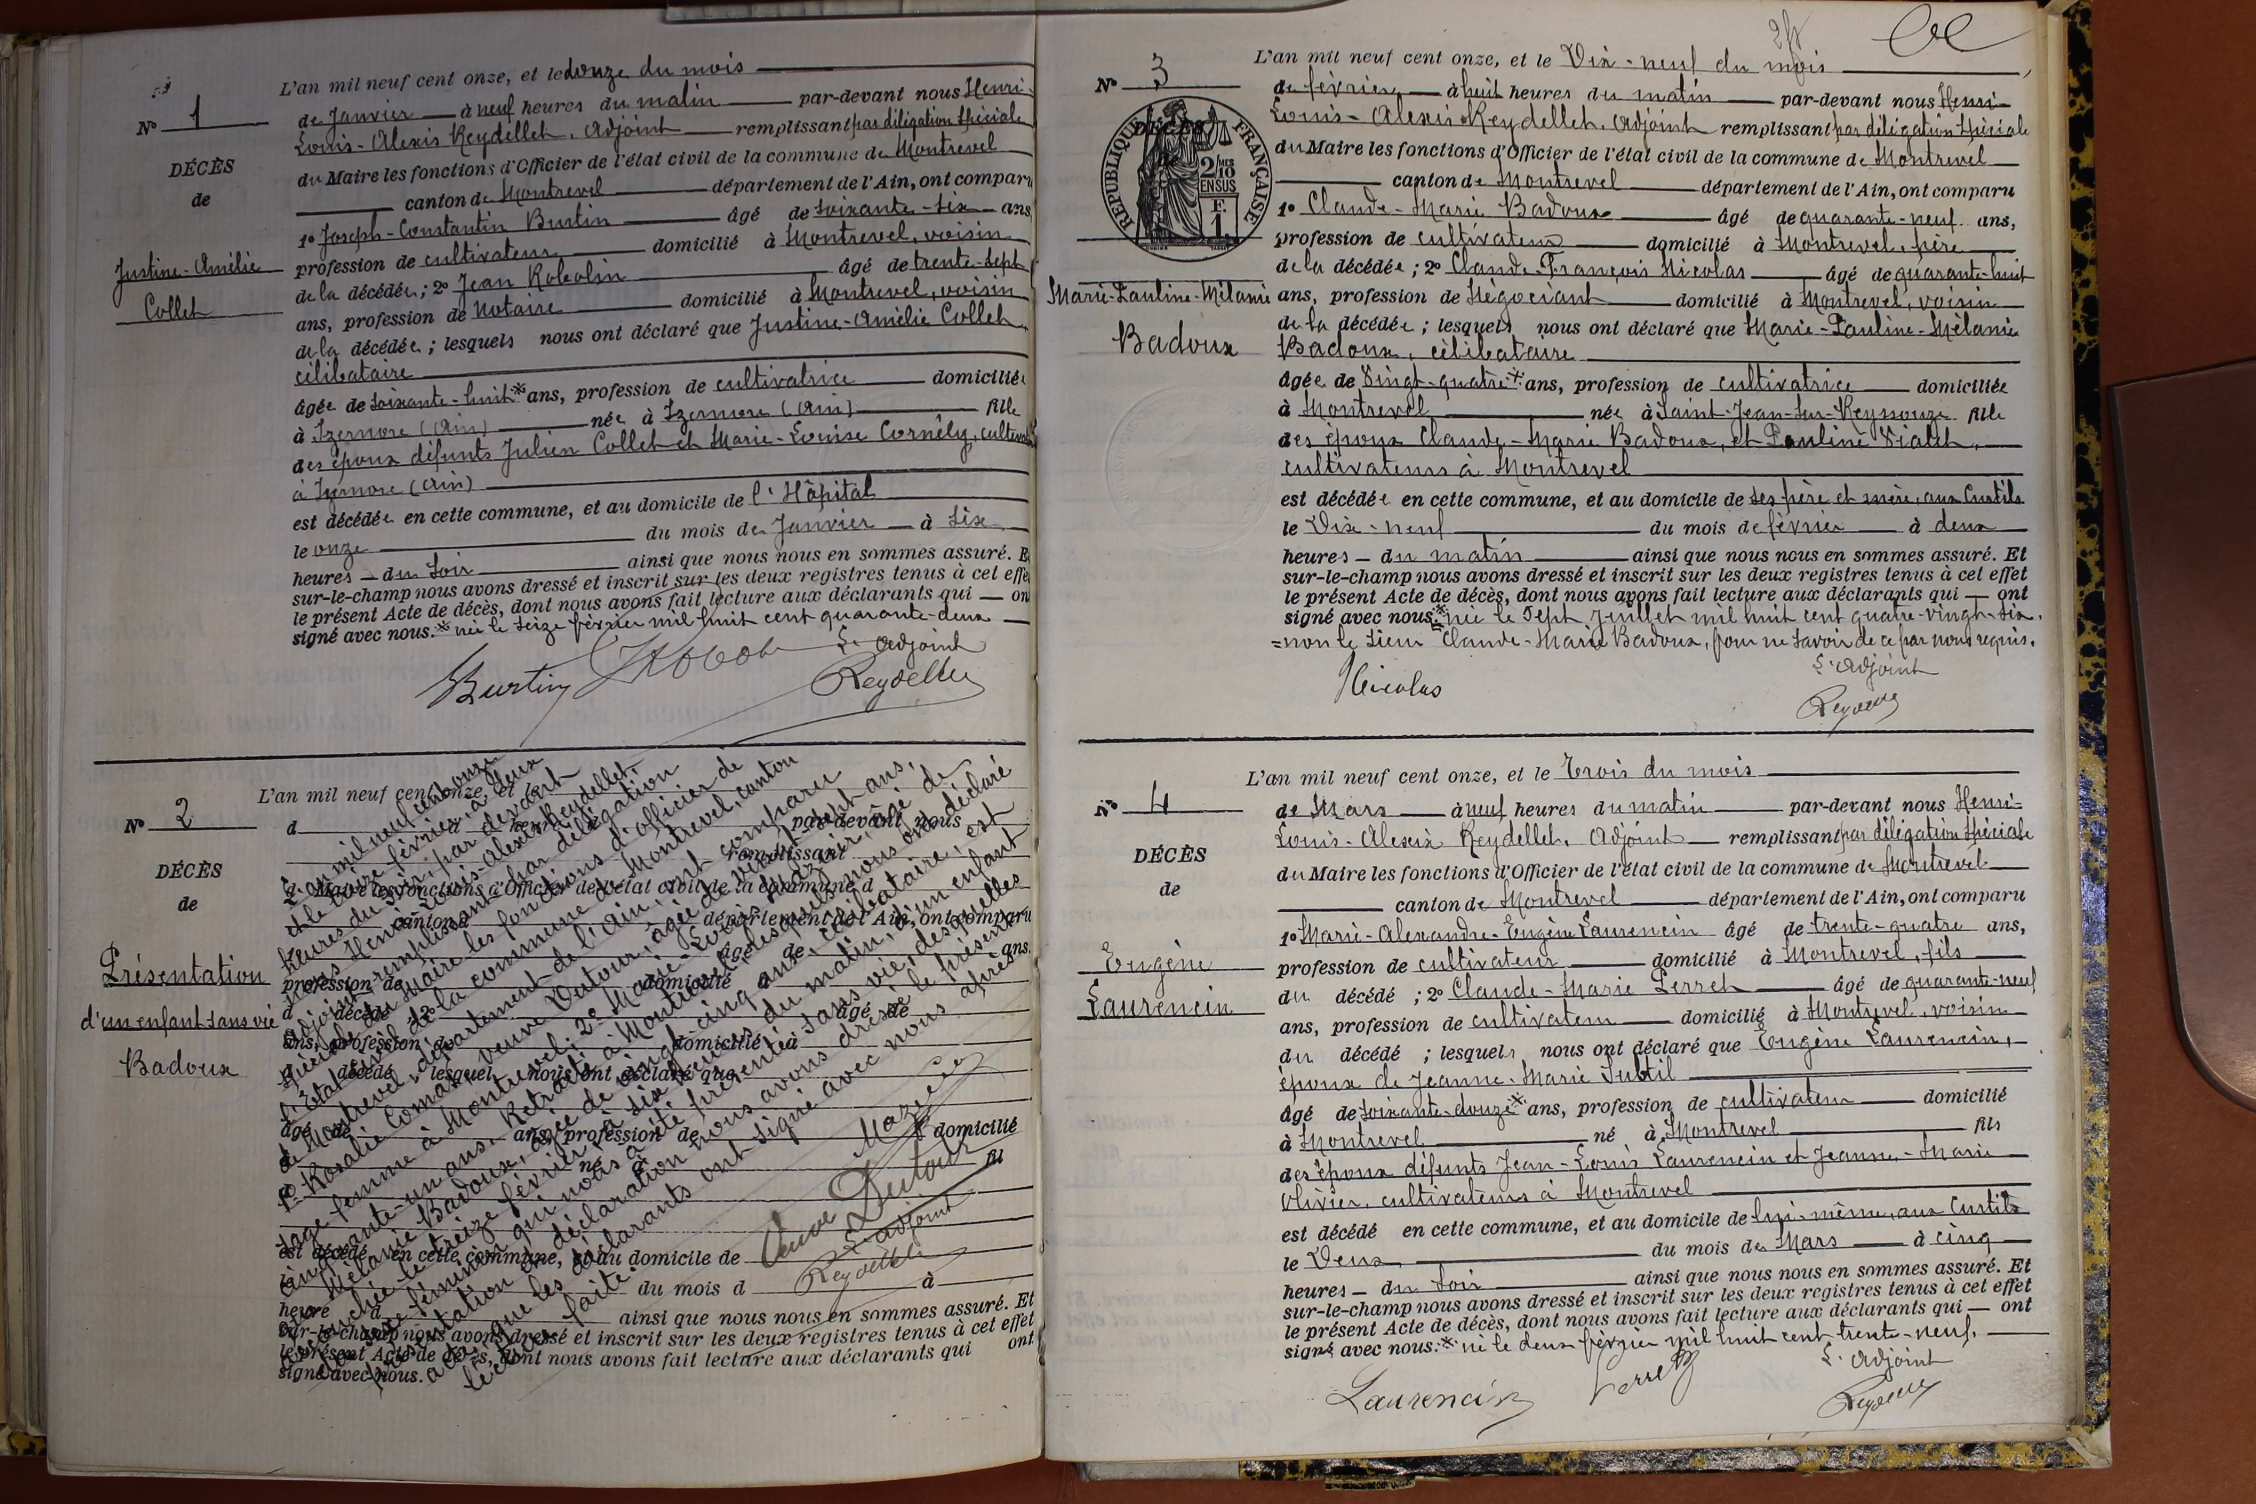 N° 1
DÉCÈS
de
Justine-Amélie
Collet
L'an mil neuf cent onze, et le douze du mois
de Janvier à neuf heures du matin par-devant nous Henri-
Louis-Alexis Reydellet, Adjoint remplissant par délégation spéciale
du Maire les fonctions d'Officier de l'état civil de la commune de Montrevel
canton de Montrevel département de l'Ain, ont comparu
1° Joseph-Constantin Burtin âgé de soixante-six ans,
profession de cultivateur domicilié à Montrevel, voisin
de la décédée; 2° Jean âgé de trente-sept
ans, profession de Notaire domicilié à Montrevel, voisin
de la décédée; lesquels nous ont déclaré que Justine-Amélie Collet,
célibataire
âgée de soixante-huit* ans, profession de cultivatrice domiciliée
à Izernore (Ain) née à Izernore (Ain) fille
des époux défunts Julien Collet et Marie-Louise Cornély,
à Izernore (Ain)
est décédée en cette commune, et au domicile de l'Hôpital
le onze du mois de Janvier à six
heures du soir ainsi que nous nous en sommes assuré. Et
sur-le-champ nous avons dressé et inscrit sur les deux registres tenus à cet effet
le présent Acte de décès, dont nous avons fait lecture aux déclarants qui — ont
signé avec nous. * née le seize février mil huit cent quarante-deux
L'Adjoint
Burtin
Reydellet
N° 2
DÉCÈS
de
Présentation
d'un enfant sans vie
Badoux
L'an mil neuf cent onze,
et le treize février, à deux
heures du soir, par devant
nous Henri-Louis-Alexis Reydellet,
Adjoint remplissant par délégation
spéciale du Maire les fonctions d'officier de
l'État civil de la commune de Montrevel, canton
de Montrevel, département de l'Ain, ont comparu
1° Rosalie veuve Dutour, âgée de ans,
sage femme à Montrevel; 2° Marie-Louis Mazuir, âgé de
cinquante-un ans, Retraité à Montrevel, lesquels nous ont déclaré
que Mélanie Badoux, âgée de vingt-cinq ans, célibataire, est
accouchée le treize février à six heures du matin, d'un enfant
du sexe féminin qui nous a été présenté sans vie, desquelles
présentation et déclaration nous avons dressé le présent
acte que les déclarants ont signé avec nous après
lecture faite.
Veuve Dutour
L'adjoint
Reydellet
L'an mil neuf cent onze, et le
d à heure d par-devant nous
remplissant
d Maire les fonctions d'Officier de l'état civil de la commune d
canton d département de l'Ain, ont comparu
âgé de ans,
profession de domicilié à
d décédé; 2° âgé de
ans, profession de domicilié à
d décédé; lesquel nous ont déclaré que
âgé de ans, profession de domicilié
à né à fil
est décédé en cette commune, et au domicile de
le du mois d à
heure d ainsi que nous nous en sommes assuré. Et
sur-le-champ nous avons dressé et inscrit sur les deux registres tenus à cet effet
le présent Acte de décès, dont nous avons fait lecture aux déclarants qui ont
signé avec nous.
N° 3
DÉCÈS
RÉPUBLIQUE FRANÇAISE
2/10 EN SUS
F. 1
Marie-Pauline-Mélanie
Badoux
L'an mil neuf cent onze, et le Dix-neuf du mois
de février à huit heures du matin par-devant nous Henri-
Louis-Alexis Reydellet, Adjoint remplissant par délégation spéciale
du Maire les fonctions d'Officier de l'état civil de la commune de Montrevel
canton de Montrevel département de l'Ain, ont comparu
1° Claude-Marie Badoux âgé de quarante-neuf ans,
profession de cultivateur domicilié à Montrevel, père
de la décédée; 2° Claude-François Nicolas âgé de quarante-huit
ans, profession de Négociant domicilié à Montrevel, voisin
de la décédée; lesquels nous ont déclaré que Marie-Pauline-Mélanie
Badoux, célibataire
âgée de Vingt-quatre* ans, profession de cultivatrice domiciliée
à Montrevel née à Saint-Jean-sur-Reyssouze fille
des époux Claude-Marie Badoux, et Pauline Vialet,
cultivateurs à Montrevel
est décédée en cette commune, et au domicile de ses père et mère, aux Curtils
le Dix-neuf du mois de février à deux
heures — du matin ainsi que nous nous en sommes assuré. Et
sur-le-champ nous avons dressé et inscrit sur les deux registres tenus à cet effet
le présent Acte de décès, dont nous avons fait lecture aux déclarants qui — ont
signé avec nous. * née le Sept Juillet mil huit cent quatre-vingt-six.
= non le sieur Claude-Marie Badoux, pour ne savoir de ce par nous requis.
L'Adjoint
Nicolas
N° 4
DÉCÈS
de
Eugène
Laurencin
L'an mil neuf cent onze, et le Trois du mois
de Mars à neuf heures du matin par-devant nous Henri-
Louis-Alexis Reydellet, Adjoint remplissant par délégation spéciale
du Maire les fonctions d'Officier de l'état civil de la commune de Montrevel
canton de Montrevel département de l'Ain, ont comparu
1° Marie-Alexandre-Eugène Laurencin âgé de trente-quatre ans,
profession de cultivateur domicilié à Montrevel, fils
du décédé; 2° Claude-Marie Perret âgé de quarante-neuf
ans, profession de cultivateur domicilié à Montrevel, voisin
du décédé; lesquels nous ont déclaré que Eugène Laurencin,
époux de Jeanne-Marie Subtil
âgé de soixante-douze* ans, profession de cultivateur domicilié
à Montrevel né à Montrevel fils
des époux défunts Jean-Louis Laurencin et Jeanne-Marie
Olivier, cultivateurs à Montrevel
est décédé en cette commune, et au domicile de lui-même, aux Curtils
le Deux du mois de Mars à cinq
heures — du soir ainsi que nous nous en sommes assuré. Et
sur-le-champ nous avons dressé et inscrit sur les deux registres tenus à cet effet
le présent Acte de décès, dont nous avons fait lecture aux déclarants qui — ont
signé avec nous. * né le deux février mil huit cent trente-neuf.
L'Adjoint
Laurencin Perret